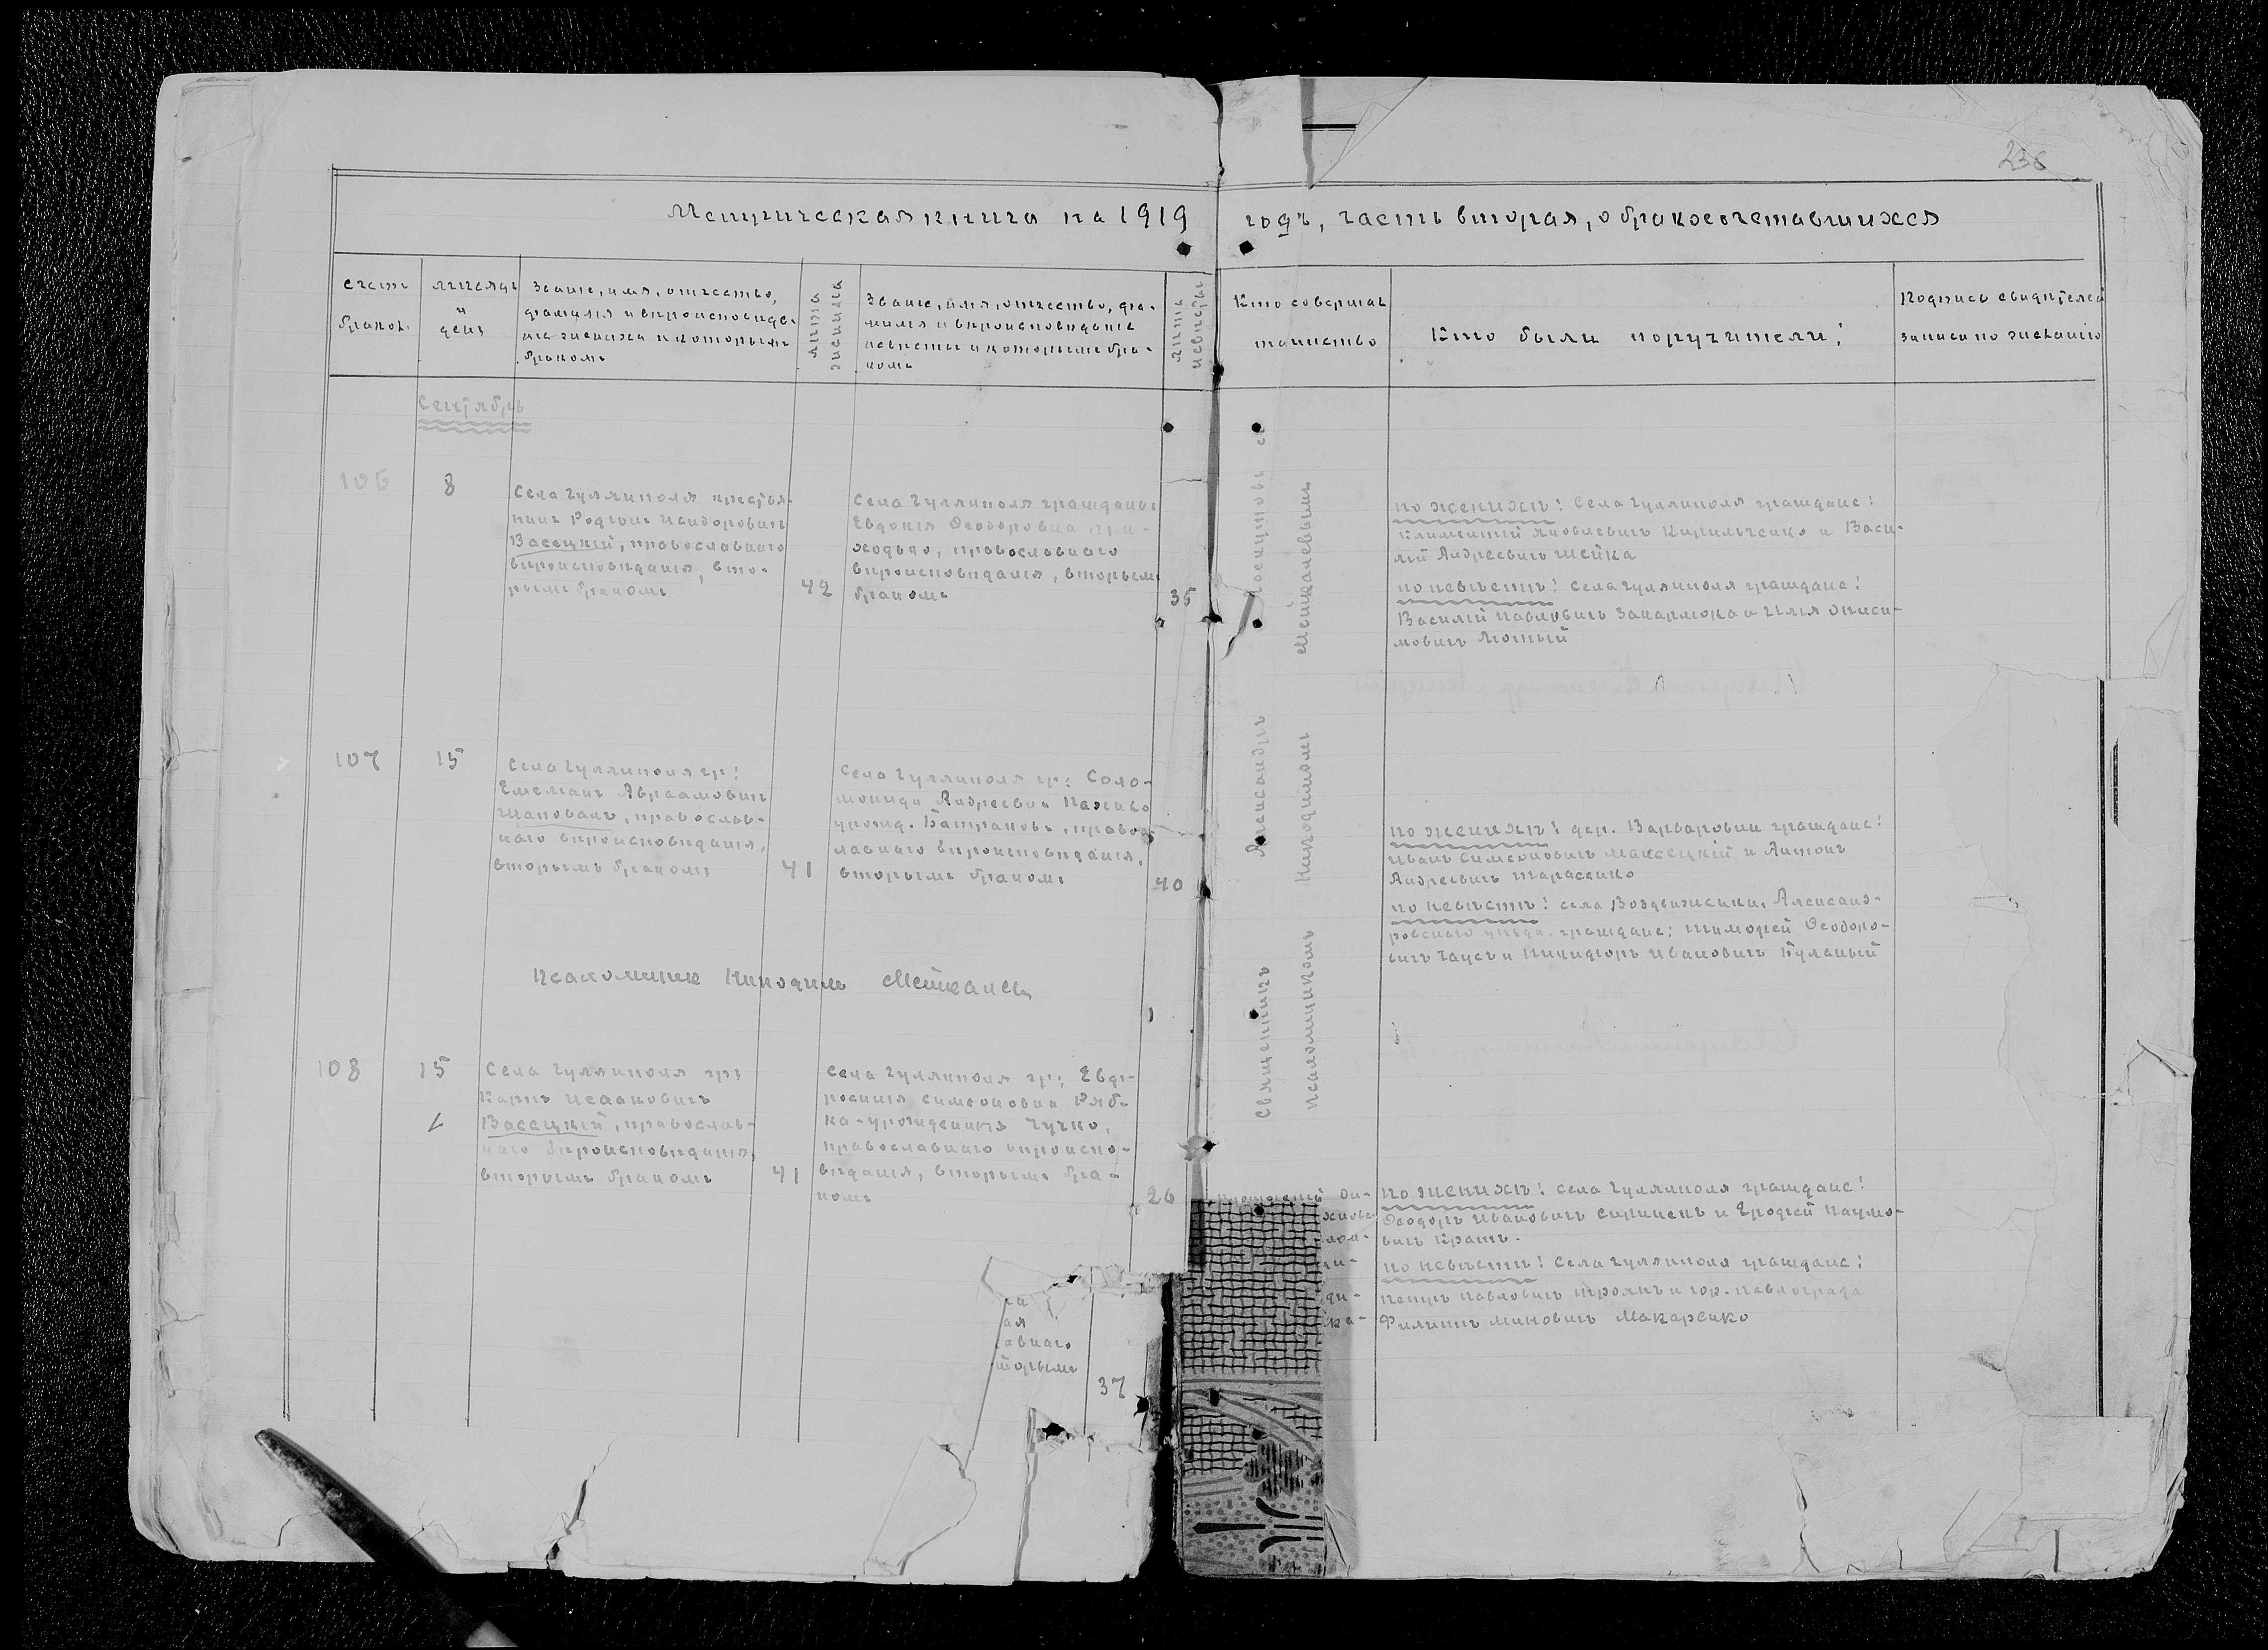 236
Метрическая книга на 1919 годъ, часть вторая, о бракосочетавшихся
Счетъ
браковъ.
Мѣсяцъ
и
день
Званіе, имя, отчество,
фамилія и вѣроисповѣда-
ніе жениха и которымъ
бракомъ
Лѣта
жениха
Званіе, имя, отчество, фа-
милія и вѣроисповѣданіе
невѣсты и которымъ бра-
комъ
Лѣта
невѣсты
Кто совершалъ
таинство
Кто были поручители:
Подпись свидѣтелей
записи по желанію
Сентябрь
106
8
Села Гуляйполя крестья-
нинъ Родіонъ Исидоровичъ
Васецкій, православнаго
вѣроисповѣданія, вто-
рымъ бракомъ
42
Села Гуляйполя гражданка
Евдокія Ѳеодоровна При-
ходько, православнаго
вѣроисповѣданія, вторымъ
бракомъ
35
Священникъ Александръ съ
псаломщикомъ Никодимомъ Мейкалевымъ
по женихѣ: Села Гуляйполя граждане:
Климентій Яковлевичъ Кирильченко и Васи-
лій Андреевичъ Шейка
по невѣстѣ: Села Гуляйполя граждане:
Василій Павловичъ и Илія Аниси-
мовичъ Лютый
107
15
Села Гуляйполя гр:
Емеліанъ Авраамовичъ
Шаповалъ, православ-
наго вѣроисповѣданія,
вторымъ бракомъ
41
Села Гуляйполя гр: Соло-
монида Андреевна
урожд. правос-
лавнаго вѣроисповѣданія,
вторымъ бракомъ
40
по женихѣ: дер. Варваровки граждане:
Иванъ Симеоновичъ и Антонъ
Андреевичъ Тарасенко
по невѣстѣ: села Воздвиженки, Александ-
ровскаго уѣзда, граждане: Тимофей Ѳеодоро-
вичъ Гаусъ и Никифоръ Ивановичъ Буланый
Псаломщикъ Никодимъ Мейкалевъ
108
15
Села Гуляйполя гр:
Карпъ Исааковичъ
Васецкій, православ-
наго вѣроисповѣданія,
вторымъ бракомъ
41
Села Гуляйполя гр: Евф-
росинія Симеоновна Ряб-
ка-урожденная Чучко,
православнаго вѣроиспо-
вѣданія, вторымъ бра-
комъ
26
по женихѣ: села Гуляйполя граждане:
Ѳеодоръ Ивановичъ и Ерофей Наумо-
вичъ Кратъ.
по невѣстѣ: Села Гуляйполя граждане:
Петръ Павловичъ Троянъ и гор. Павлограда
Филиппъ Миновичъ Макаренко
ка
ая
авнаго
торымъ
37